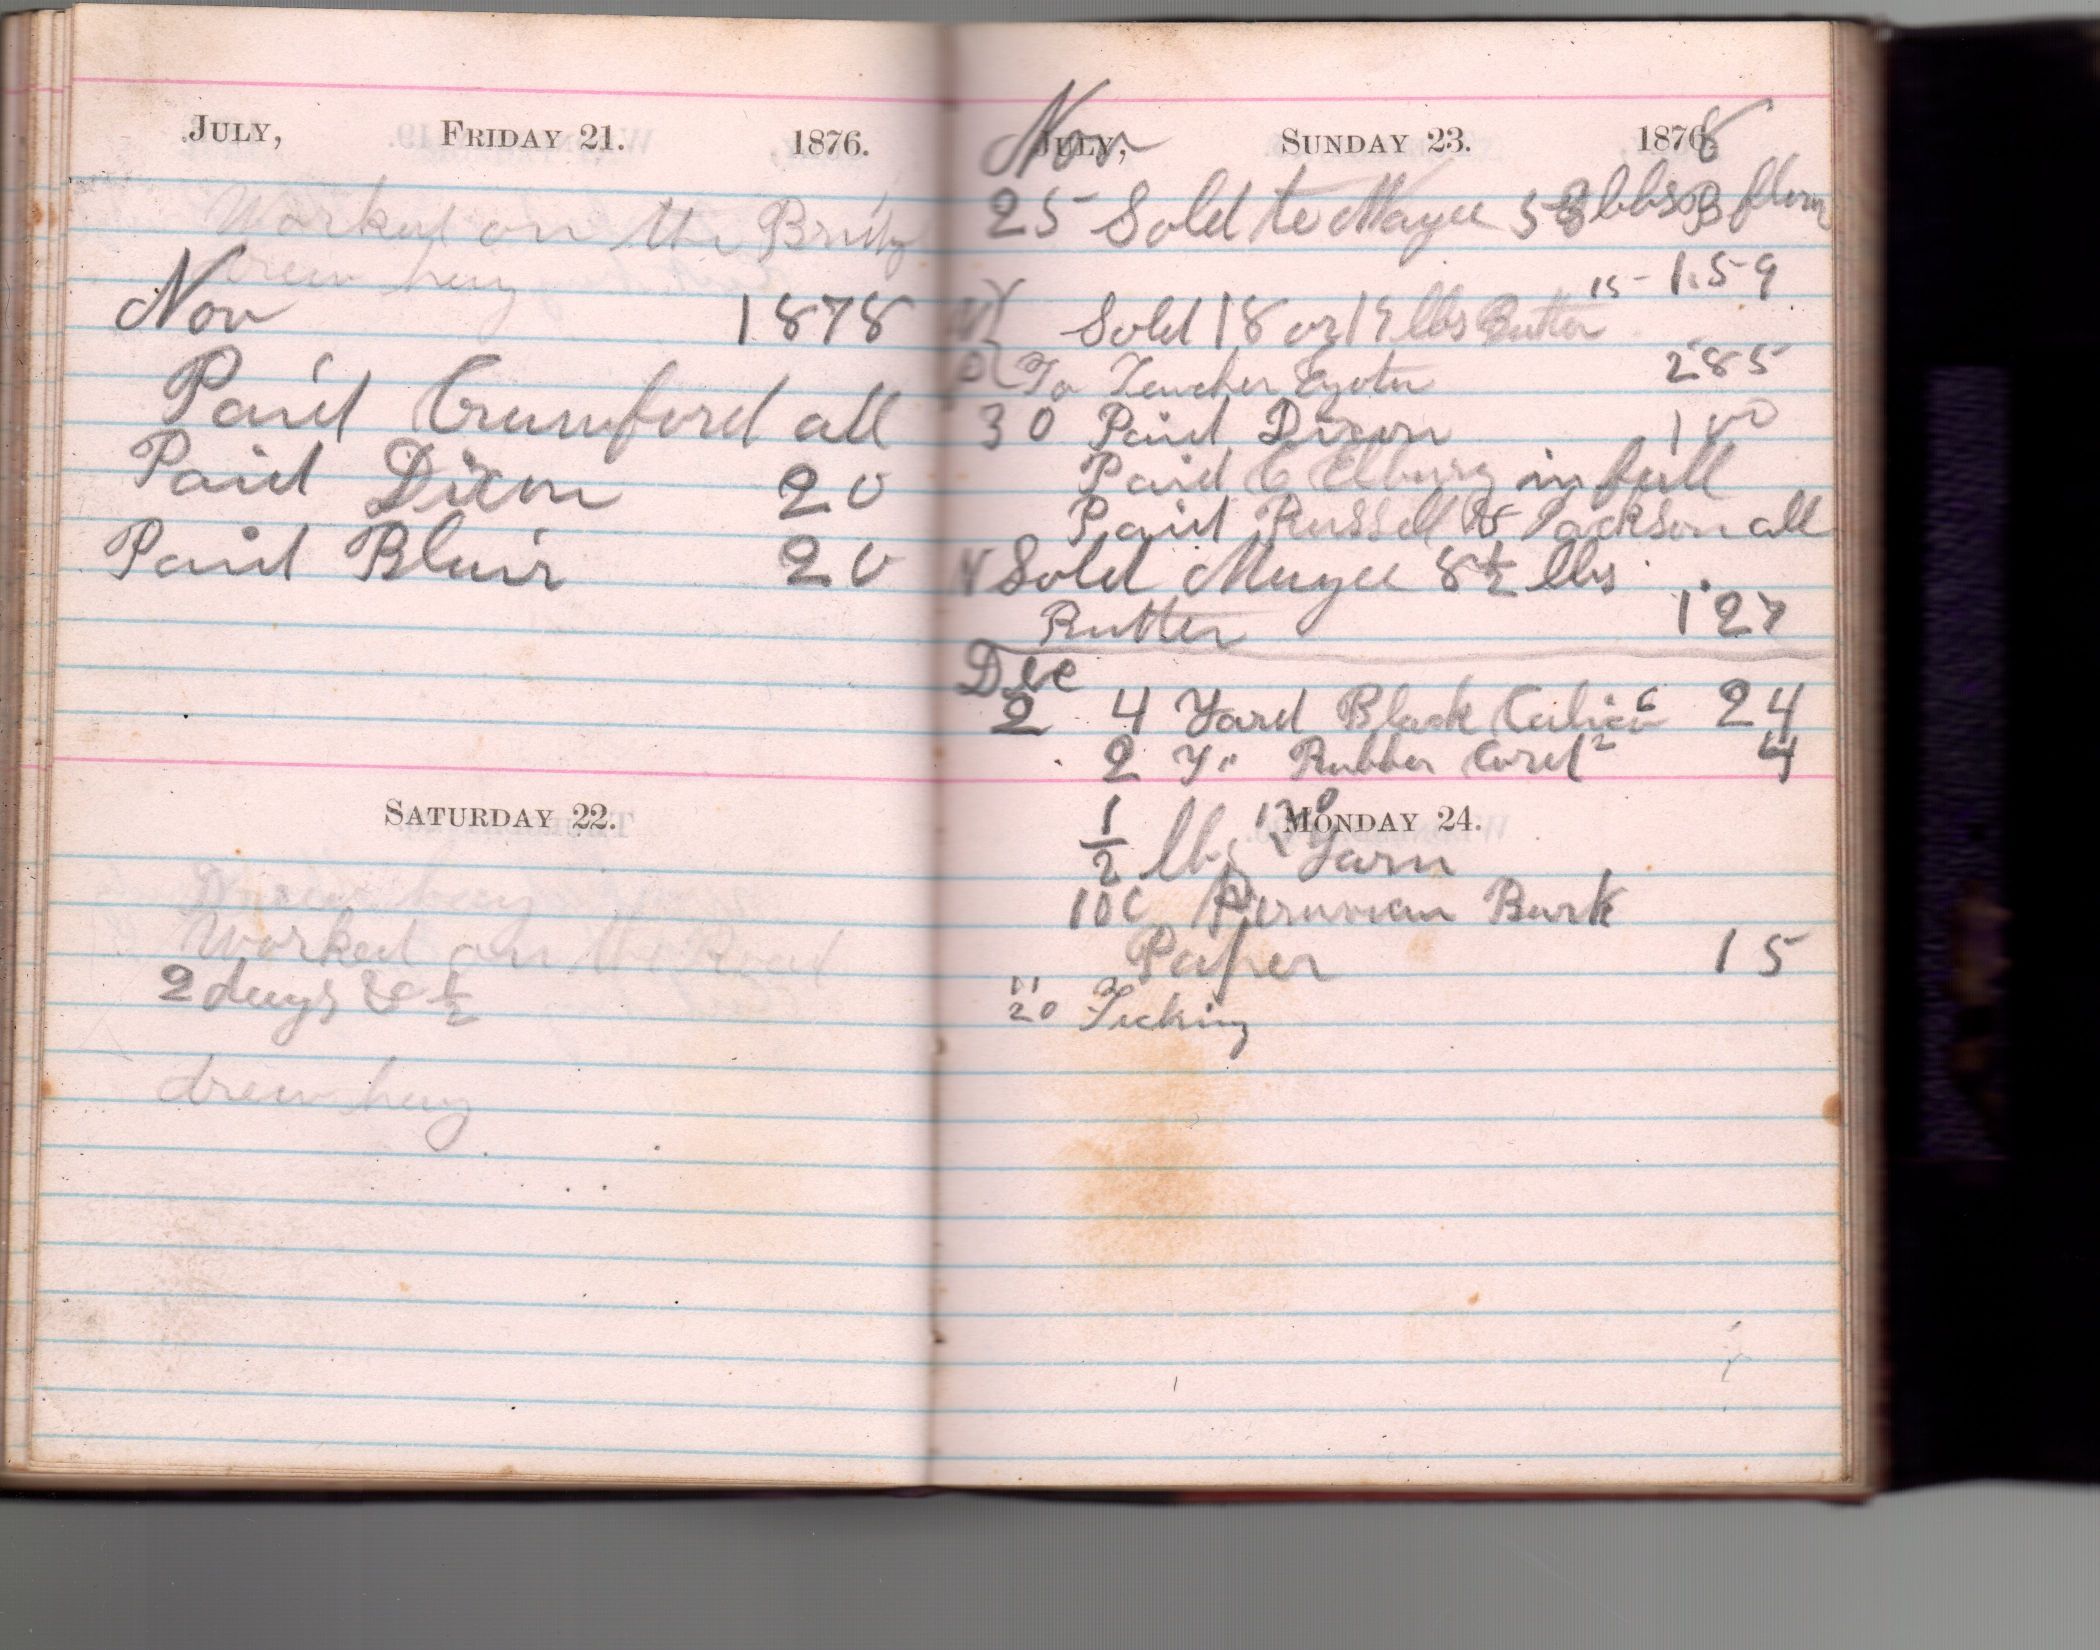 JULY, FRIDAY 21. 1876.
Worked on the Bridg
drew hey
Nov 1878
Paid Crumford all
Paid Dixon 20
Paid Blair 20
SATURDAY 22.
Drew hey
Worked on the Road
2 days & 1/2
drew hey
Nov
JULY, SUNDAY 23. 1876 8
25 Sold to Mayee 53 lbs B flour
1.59
Sold 18 or 19 lbs Butter 15
To Teacher 285
30 Paid Dixon 100
Paid C Elburg in full
Paid Russell & Jackson all
N Sold Mayee 8 1/2 lbs
Butter 1 27
Dec
2 4 Yard Black Calico 6 24
2 Y " Rubber Cord 2 4
MONDAY 24.
1/2 lbs Yarn
10c Peruvian Bark
Paper 15
11
20 Ticking